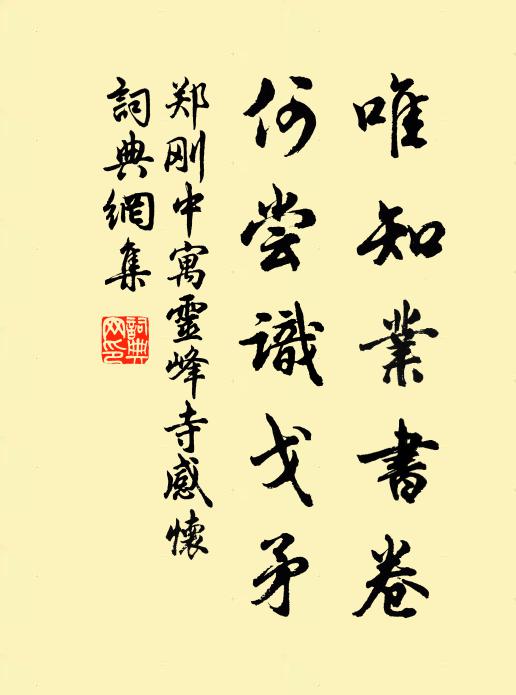 唯知業書卷
何尝識戈矛
郑刚中寓靈峰寺感懷
詞典網集
詞典网印